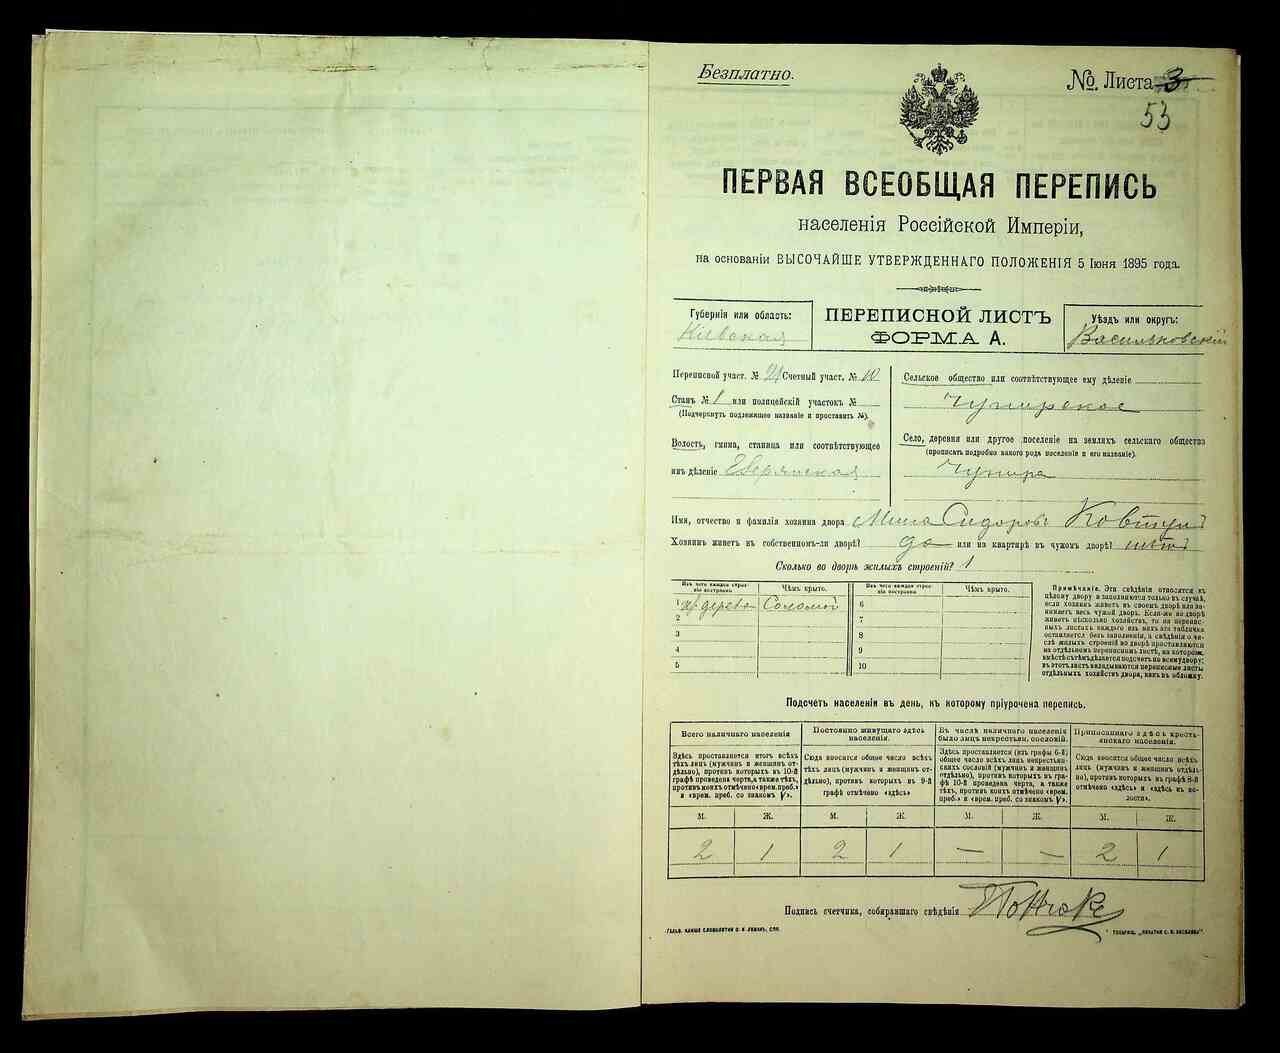 Безплатно.
№ Листа 3
53
ПЕРВАЯ ВСЕОБЩАЯ ПЕРЕПИСЬ
населенія Россійской Имперіи,
на основаніи ВЫСОЧАЙШЕ УТВЕРЖДЕННАГО ПОЛОЖЕНІЯ 5 Іюня 1895 года.
Губернія или область:
Кіевская
ПЕРЕПИСНОЙ ЛИСТЪ
ФОРМА А.
Уѣздъ или округъ:
Васильковскій
Переписной участ. № 21 Счетный участ. № 10
Станъ № 1 или полицейскій участокъ №
(Подчеркнуть подлежащее названіе и проставить №).
Волость, гмина, станица или соотвѣтствующее
имъ дѣленіе
Сельское общество или соотвѣтствующее ему дѣленіе
Чупирское
Село, деревня или другое поселеніе на земляхъ сельскаго общества
(прописать подробно какого рода поселеніе и его названіе).
Чупира
Имя, отчество и фамилія хозяина двора Мина Сидоровъ Ковтун
Хозяинъ живетъ въ собственномъ-ли дворѣ? да или на квартирѣ въ чужомъ дворѣ? нѣтъ
Сколько во дворѣ жилыхъ строеній? 1
Изъ чего каждое строеніе построено
Чѣмъ крыто.
Изъ чего каждое строеніе построено
Чѣмъ крыто.
1 дерева Соломой
2
3
4
5
6
7
8
9
10
Примѣчаніе. Эти свѣдѣнія относятся къ
цѣлому двору и заполняются только въ случаѣ,
если хозяинъ живетъ въ своемъ дворѣ или за-
нимаетъ весь чужой дворъ. Если-же во дворѣ
живетъ нѣсколько хозяйствъ, то на перепис-
ныхъ листахъ каждаго изъ нихъ эта табличка
оставляется безъ заполненія, а свѣдѣнія о чи-
слѣ жилыхъ строеній во дворѣ проставляются
на отдѣльномъ переписномъ листѣ, на которомъ
вмѣстѣ съ тѣмъ дѣлается подсчетъ по всему двору;
въ этотъ листъ вкладываются переписные листы
отдѣльныхъ хозяйствъ двора, какъ въ обложку.
Подсчетъ населенія въ день, къ которому пріурочена перепись.
Всего наличнаго населенія
Здѣсь проставляется итогъ всѣхъ
тѣхъ лицъ (мужчинъ и женщинъ от-
дѣльно), противъ которыхъ въ 10-й
графѣ проведена черта, а также тѣхъ,
противъ коихъ отмѣчено «врем. преб.»
и «врем. преб. со знакомъ V».
Постоянно живущаго здѣсь
населенія.
Сюда вносится общее число всѣхъ
тѣхъ лицъ (мужчинъ и женщинъ от-
дѣльно), противъ которыхъ въ 9-й
графѣ отмѣчено «здѣсь»
Въ числѣ наличнаго населенія
было лицъ некрестьян. сословій.
Здѣсь проставляется (изъ графы 6-й)
общее число всѣхъ лицъ некрестьян-
скихъ сословій (мужчинъ и женщинъ
отдѣльно), противъ которыхъ въ гра-
фѣ 10-й проведена черта, а также
тѣхъ, противъ коихъ отмѣчено «врем.
преб.» и «врем. преб. со знакомъ V».
Приписаннаго здѣсь кресть-
янскаго населенія.
Сюда вносится общее число всѣхъ
лицъ (мужчинъ и женщинъ отдѣль-
но), противъ которыхъ въ графѣ 8-й
отмѣчено «здѣсь» и «здѣсь въ во-
лости».
М. Ж. М. Ж. М. Ж. М. Ж.
2 1 2 1 — — 2 1
Подпись счетчика, собиравшаго свѣдѣнія